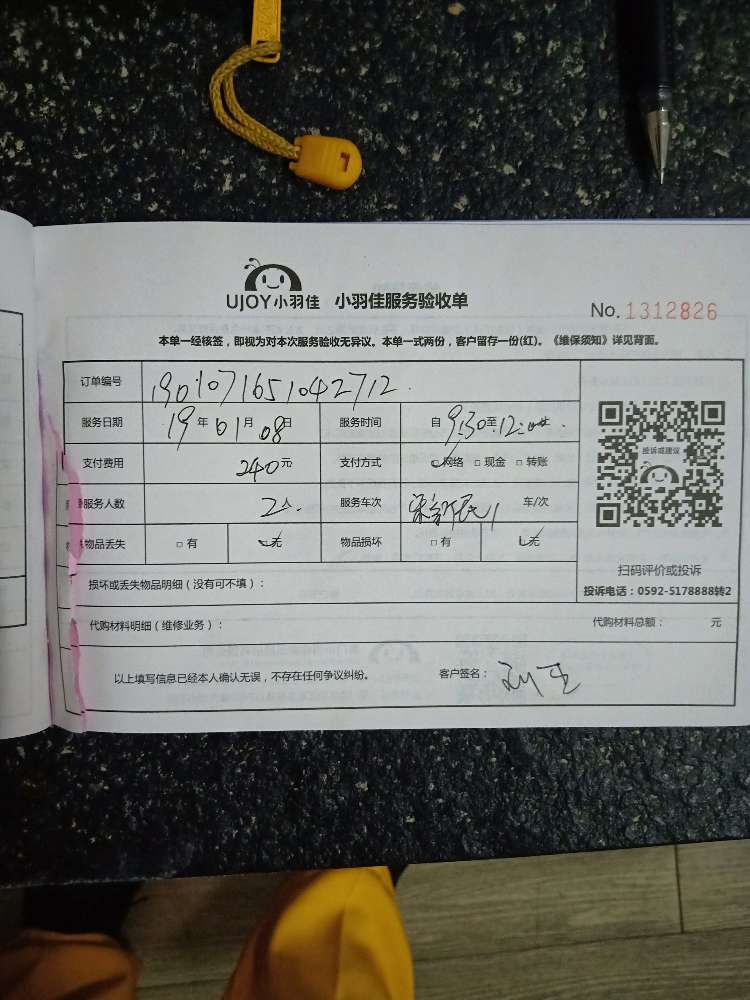 UJOY小羽佳 小羽佳服务验收单
No. 1312826
本单一经核签，即视为对本次服务验收无异议。本单一式两份，客户留存一份(红)。《维保须知》详见背面。
订单编号 1901071651042712
服务日期 19年01月08日 服务时间 自9:30至12:00止
支付费用 240元 支付方式 ☑网络 □现金 □转账
服务人数 2人 服务车次 车/次
物品丢失 □有 ☑无 物品损坏 □有 ☑无
投诉或建议
扫码评价或投诉
投诉电话：0592-5178888转2
损坏或丢失物品明细（没有可不填）：
代购材料明细（维修业务）： 代购材料总额： 元
以上填写信息已经本人确认无误，不存在任何争议纠纷。 客户签名：